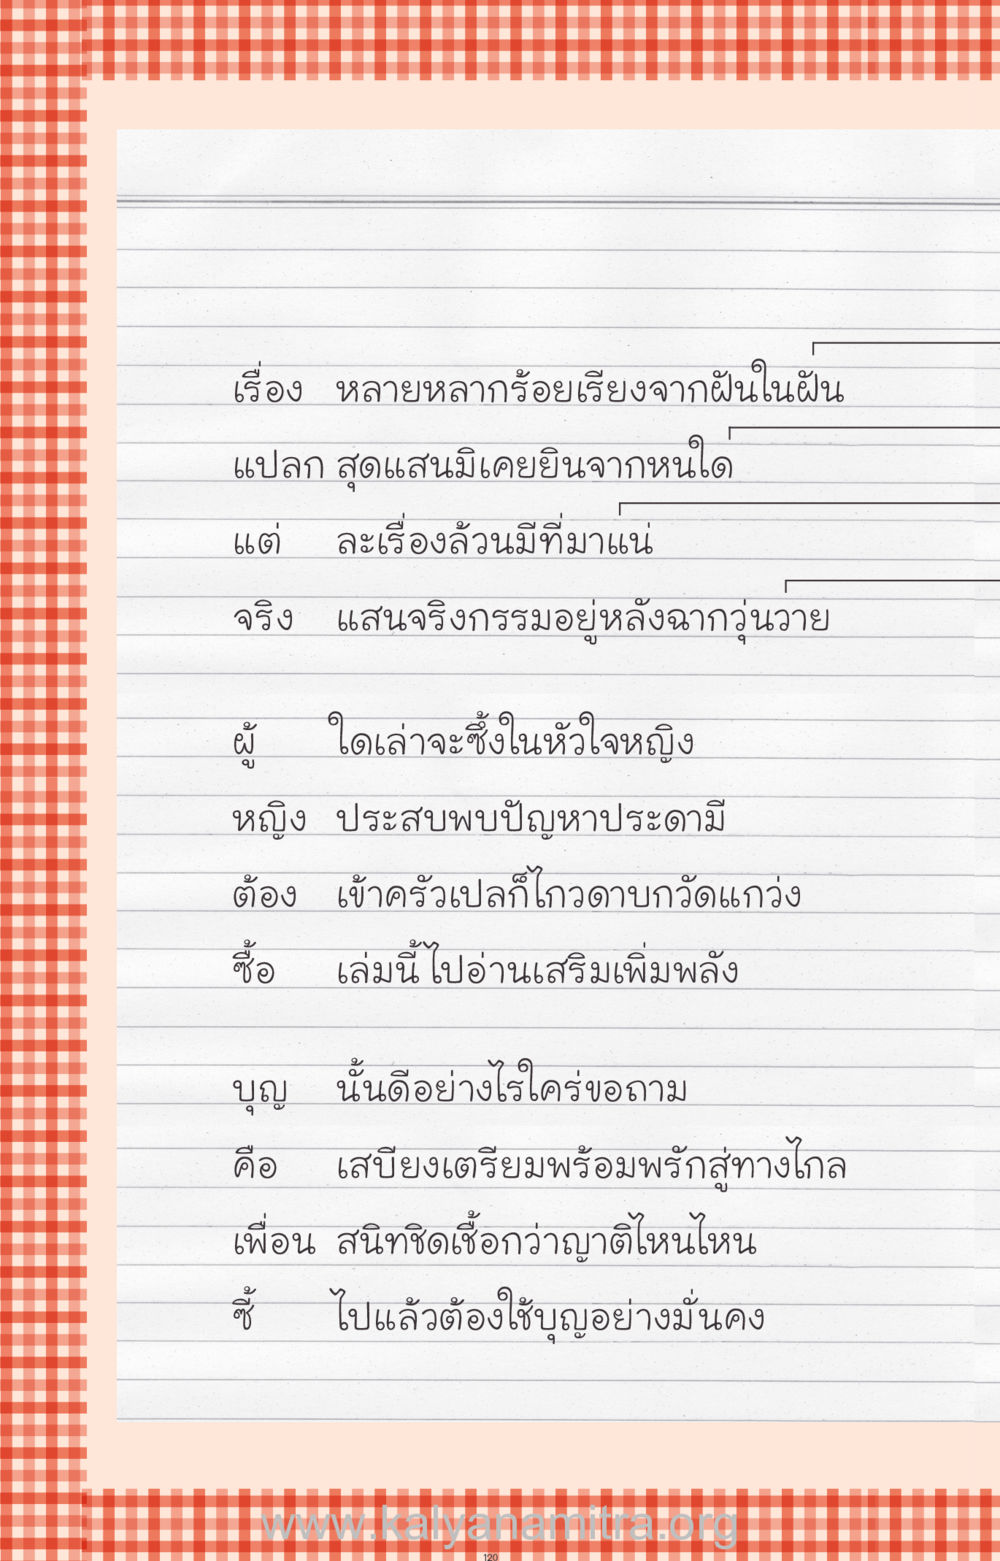 เรื่อง หลายหลากร้อยเรียงจากฝันในฝัน
แปลก สุดแสนมิเคยยินจากหนใด
แต่ ละเรื่องล้วนมีที่มาแน่
จริง แสนจริงกรรมอยู่หลังฉากวุ่นวาย
ผู้ ใดเล่าจะซึ้งในหัวใจหญิง
หญิง ประสบพบปัญหาประดามี
ต้อง เข้าครัวเปลก็ไกวดาบกวัดแกว่ง
ซื้อ เล่มนี้ไปอ่านเสริมเพิ่มพลัง
บุญ นั้นดีอย่างไรใคร่ขอถาม
คือ เสบียงเตรียมพร้อมพรักสู่ทางไกล
เพื่อน สนิทชิดเชื้อกว่าญาติไหนไหน
ซี้ ไปแล้วต้องใช้บุญอย่างมั่นคง
www.kalyanamitra.org
120